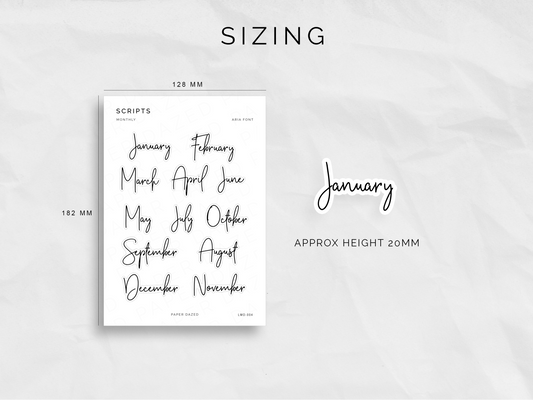 SIZING
128 MM
SCRIPTS
MONTHLY
ARIA FONT
January February
March April June
May July October
September August
December November
182 MM
PAPER DAZED
January
APPROX HEIGHT 20MM